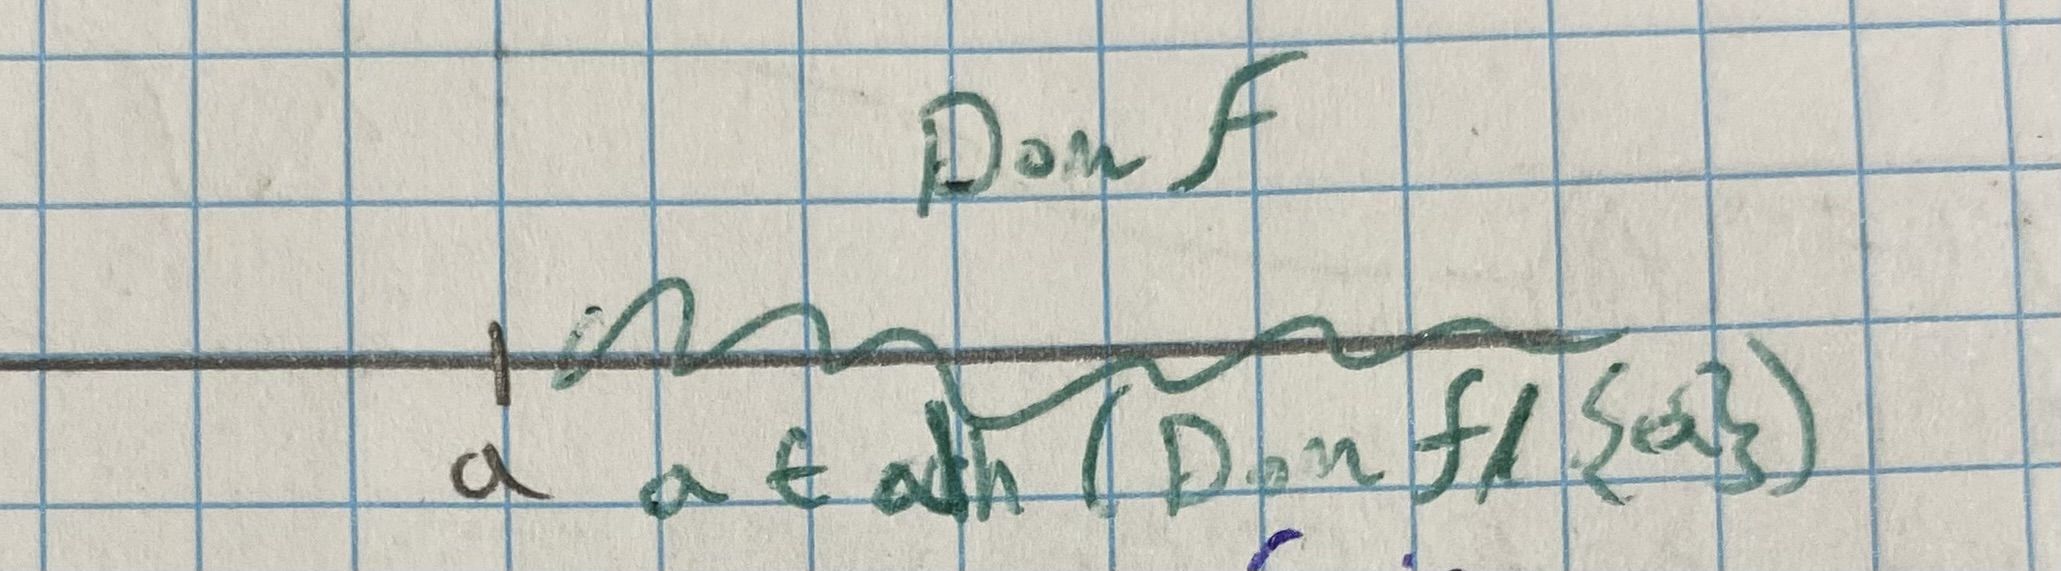 Dom f
a
a ∈ adh (Dom f \ {a})